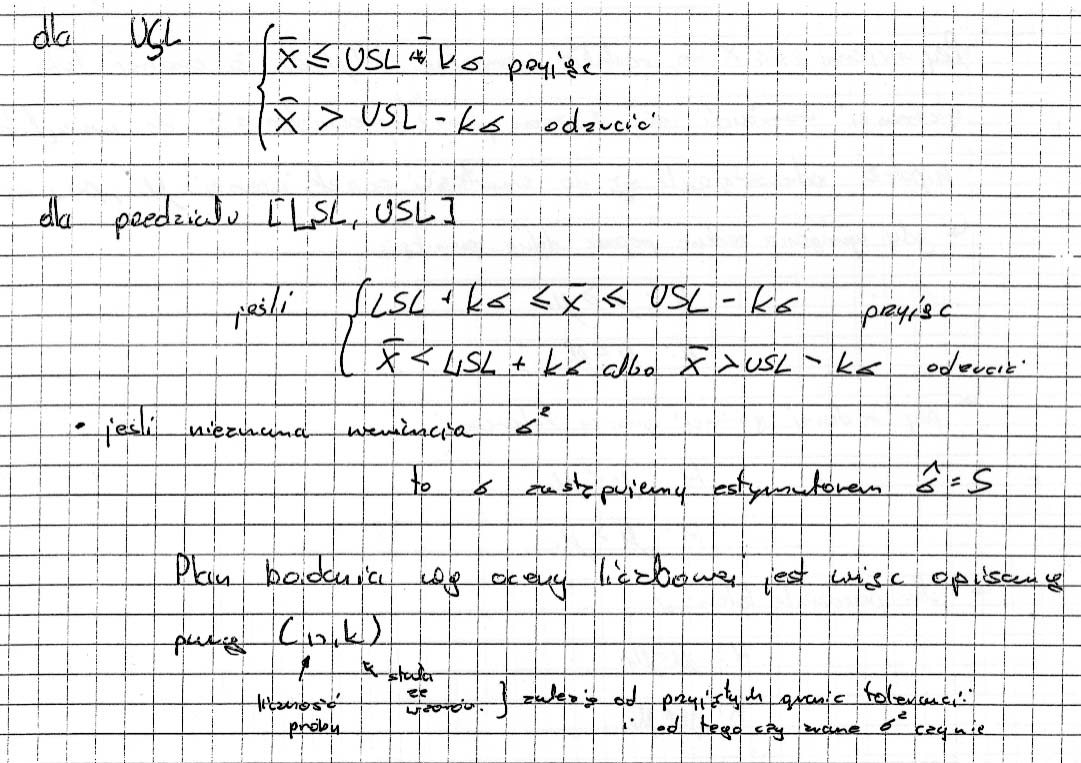 dla USL { x̄ ≤ USL - kσ przyjąć
x̄ > USL - kσ odrzucić
dla przedziału [LSL, USL]
jeśli { LSL + kσ ≤ x̄ ≤ USL - kσ przyjąć
x̄ < LSL + kσ albo x̄ > USL - kσ odrzucić
• jeśli nieznana wariancja σ²
to σ zastępujemy estymatorem σ̂ = S
Plan badania wg oceny liczbowej jest więc opisany
parą (n, k)
liczność próby
stała ze wzorów.
] zależą od przyjętych granic tolerancji
i od tego czy znane σ² czy nie